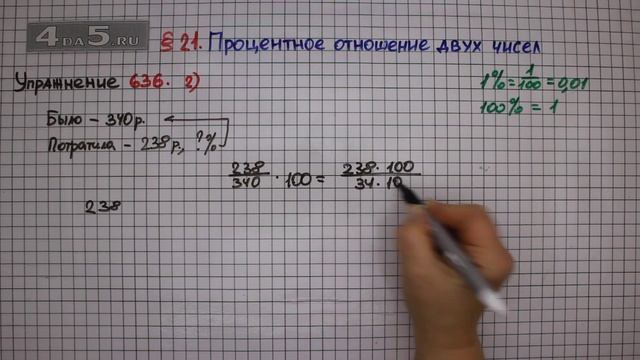 4DA5.RU
§ 21. Процентное отношение двух чисел
Упражнение 636. 2)
1% = 1/100 = 0,01
100% = 1
Было – 340 р.
Потратила – 238 р., ?%
238/340 · 100 = 238 · 100/34 · 10
238